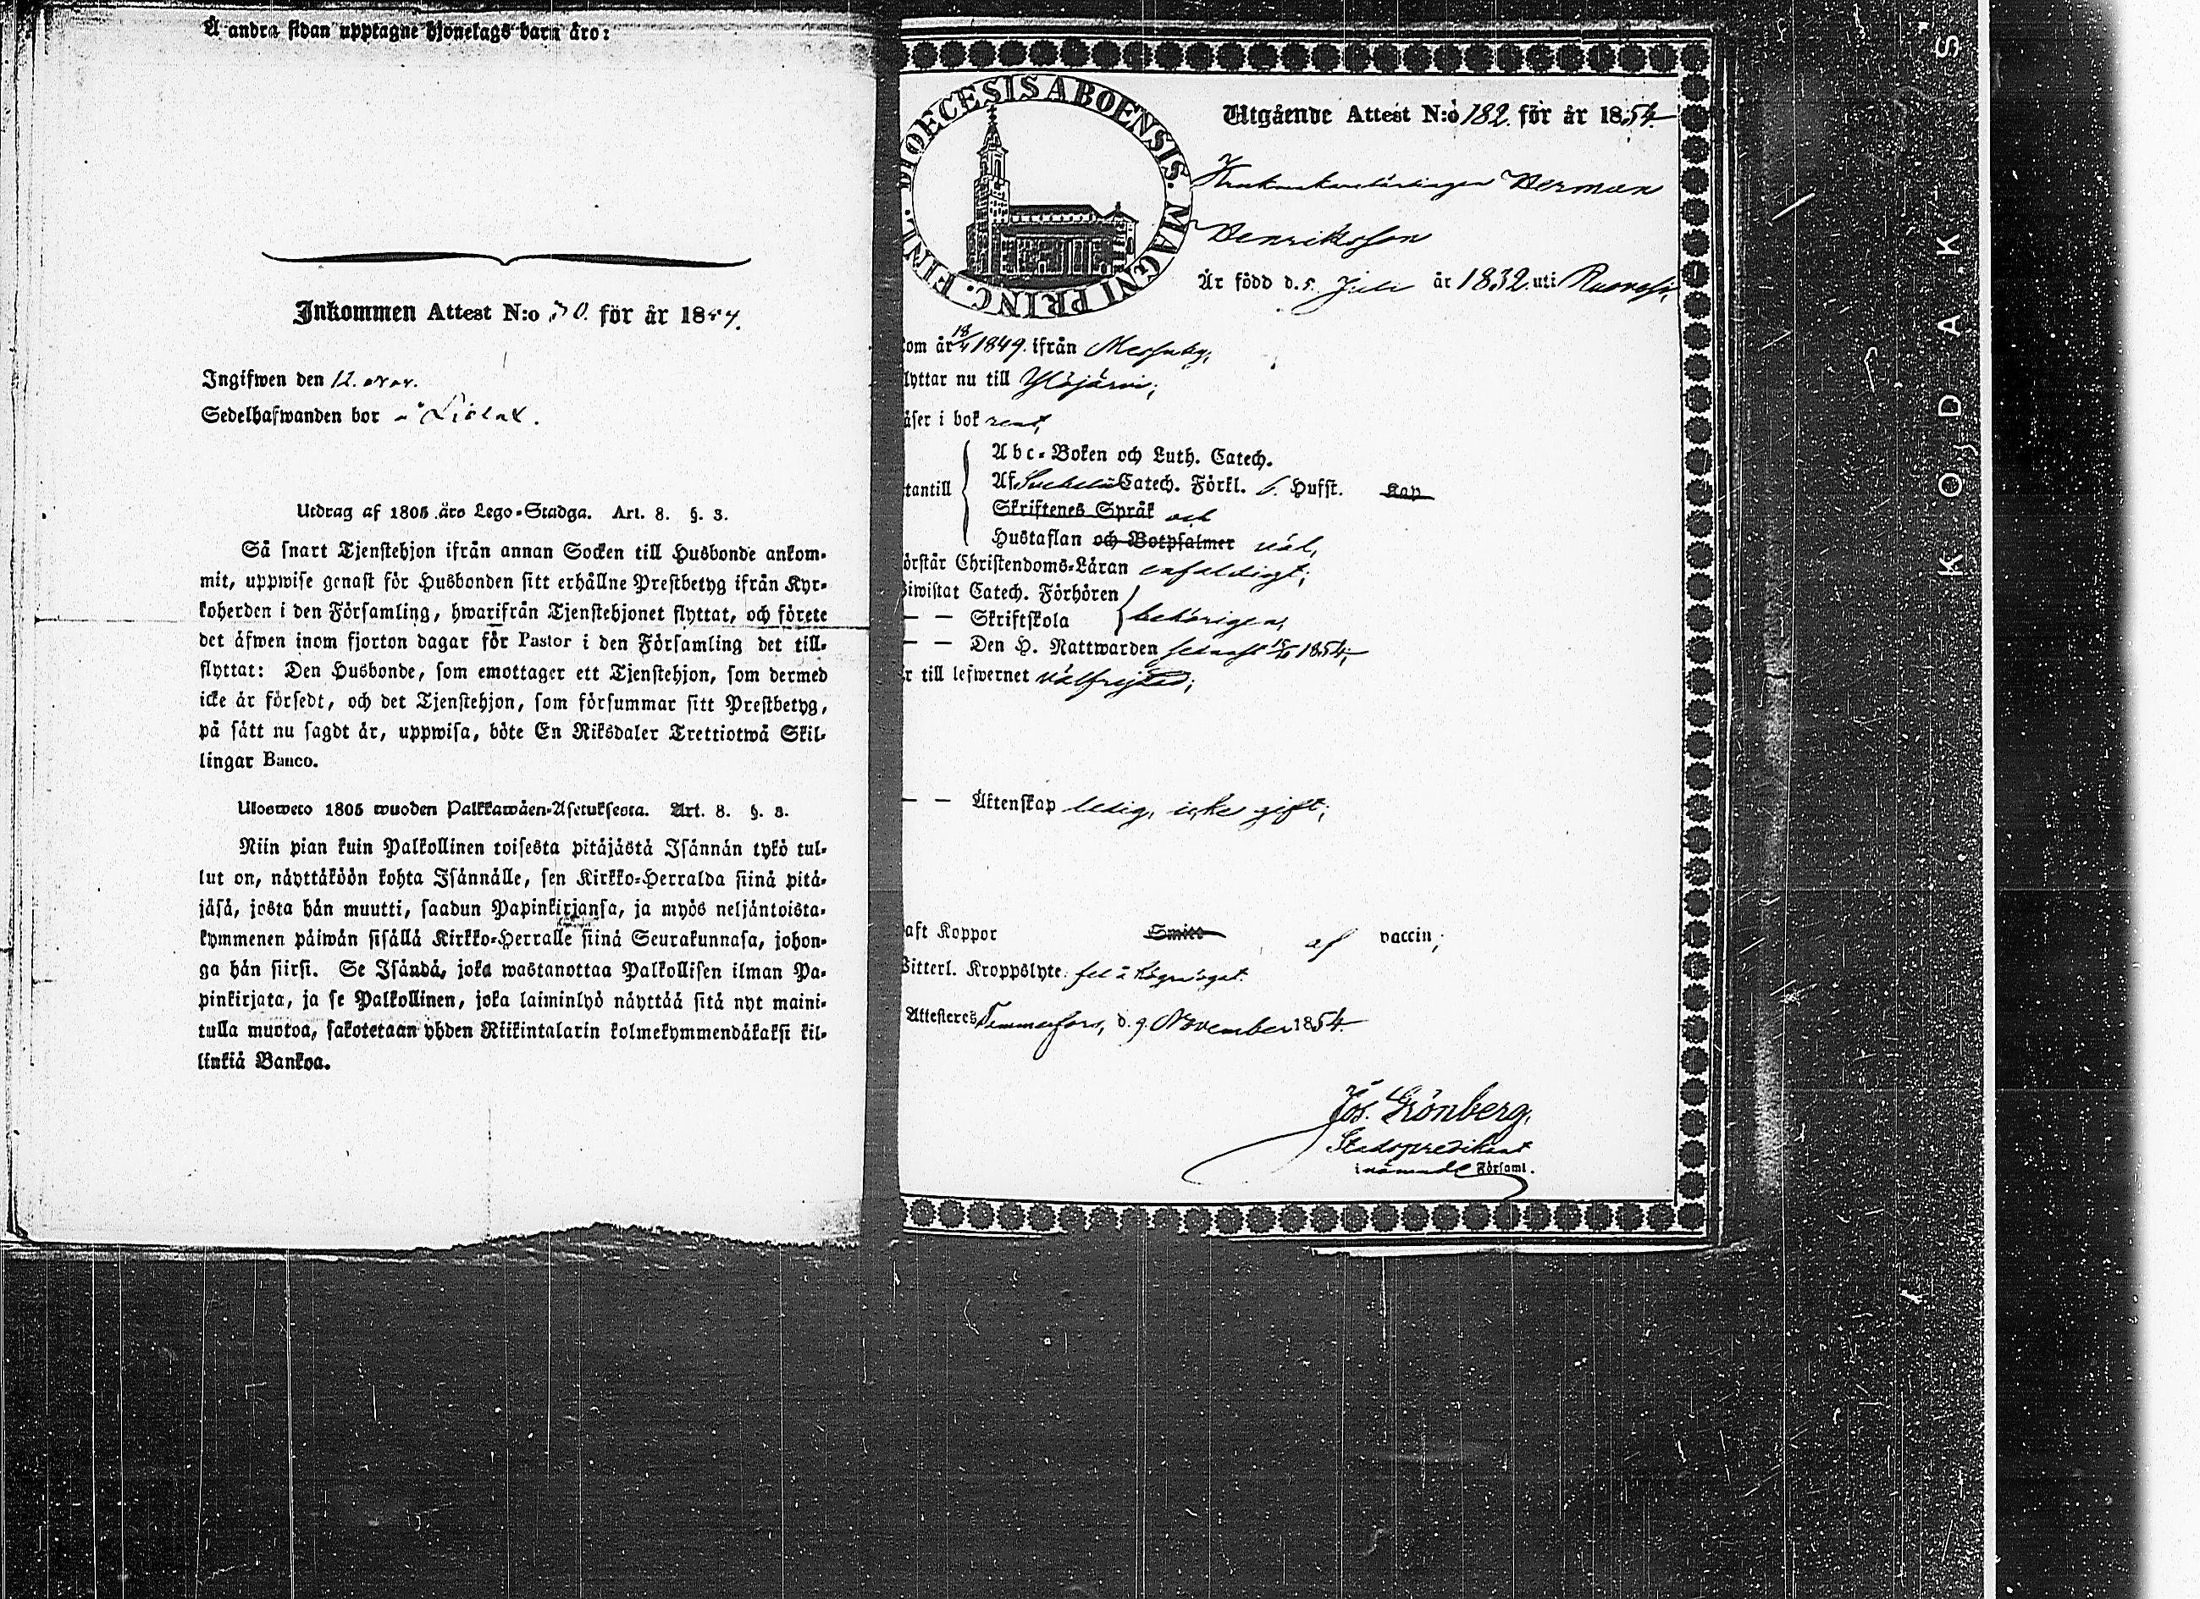 Å andra sidan upptagne hjonelags barn äro:
Inkommen Attest N:o 30. för år 1854.
Ingifwen den 12. nov.
Sedelhafwanden bor å
Utdrag af 1805 års Lego-Stadga. Art. 8. §. 3.
Så snart Tjenstehjon ifrån annan Socken till Husbonde ankom-
mit, uppwise genast för Husbonden sitt erhållne Prestbetyg ifrån Kyr-
koherden i den Församling, hwarifrån Tjenstehjonet flyttat, och förete
det äfwen inom fjorton dagar för Pastor i den Församling det till-
flyttat: Den Husbonde, som emottager ett Tjenstehjon, som dermed
icke är försedt, och det Tjenstehjon, som försummar sitt Prestbetyg,
på sätt nu sagdt är, uppwisa, böte En Riksdaler Trettiotwå Skil-
lingar Banco.
Ulosweto 1805 wuoden Palkkawäen-Asetuksesta. Art. 8. §. 3.
Niin pian kuin Palkollinen toisesta pitäjästä Isännän tykö tul-
lut on, näyttäköön kohta Isännälle, sen Kirkko-Herralda siinä pitä-
jäsä, josta hän muutti, saadun Papinkirjansa, ja myös neljäntoista-
kymmenen päiwän sisällä Kirkko-Herralle siinä Seurakunnasa, johon-
ga hän siirsi. Se Isändä, joka wastanottaa Palkollisen ilman Pa-
pinkirjata, ja se Palkollinen, joka laiminlyö näyttää sitä nyt maini-
tulla muotoa, sakotetaan yhden Riikintalarin kolmekymmendäkaksi kil-
linkiä Bankoa.
DIOECESIS ABOENSIS. MAGNI PRINC. FINL.
Utgående Attest N:o 182. för år 1854.
Krukmakarelärlingen Herman
Henriksson
Är född d. 5. Juli år 1832. uti Ruovesi,
kom år 18/4 1849. ifrån Messuby,
lyttar nu till Ylöjärvi;
äser i bok rent,
tantill
Abc-Boken och Luth. Catech.
Af Svebelii Catech. Förkl. 6. Hufst. Kap
Skriftenes Språk och
Hustaflan och Botpsalmer väl,
örstår Christendoms-Läran enfaldigt;
Biwistat Catech. Förhören
— — Skriftskola behörigen,
— — Den H. Nattwarden senast 1854;
r till lefwernet välfrejdad;
— — Äktenskap ledig, icke gift;
aft Koppor Smitt af vaccin;
Bitterl. Kroppslyte: fel å högra ögat.
Attesteres Tammerfors, d. 9. November 1854.
Jos. Grönberg,
Stadspredikant
i nämnde Församl.
KODAK S